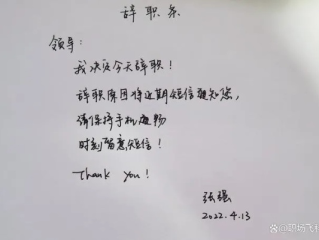 辞职条
领导:
我决定今天辞职!
辞职原因将近期短信通知您,
请保持手机通畅
时刻留意短信!
Thank you!
张强
2022.4.13
@职场飞